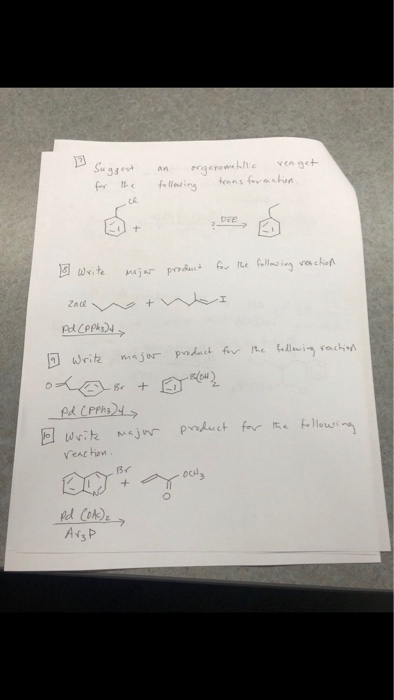 7 Suggest an organometallic reagent
for the following transformation.
Cl
+ ? DEE
8 Write major product for the following reaction
ZnCl + I
Pd(PPh3)4
9 Write major product for the following reaction
O Br + B(OH)2
Pd(PPh3)4
10 Write major product for the following
reaction.
Br
N + OCH3
O
Pd(OAc)2
Ar3P